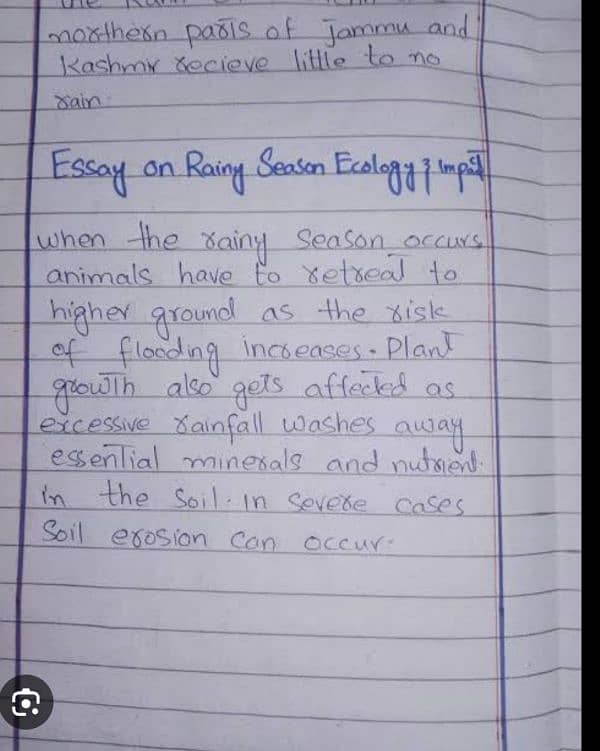 northern parts of Jammu and
Kashmir recieve little to no
rain.
Essay on Rainy Season Ecology & Impact
when the rainy season occurs
animals have to retreat to
higher ground as the risk
of flooding increases. Plant
growth also gets affected as
excessive rainfall washes away
essential minerals and nutrient.
in the soil. In severe cases
Soil erosion can occur.